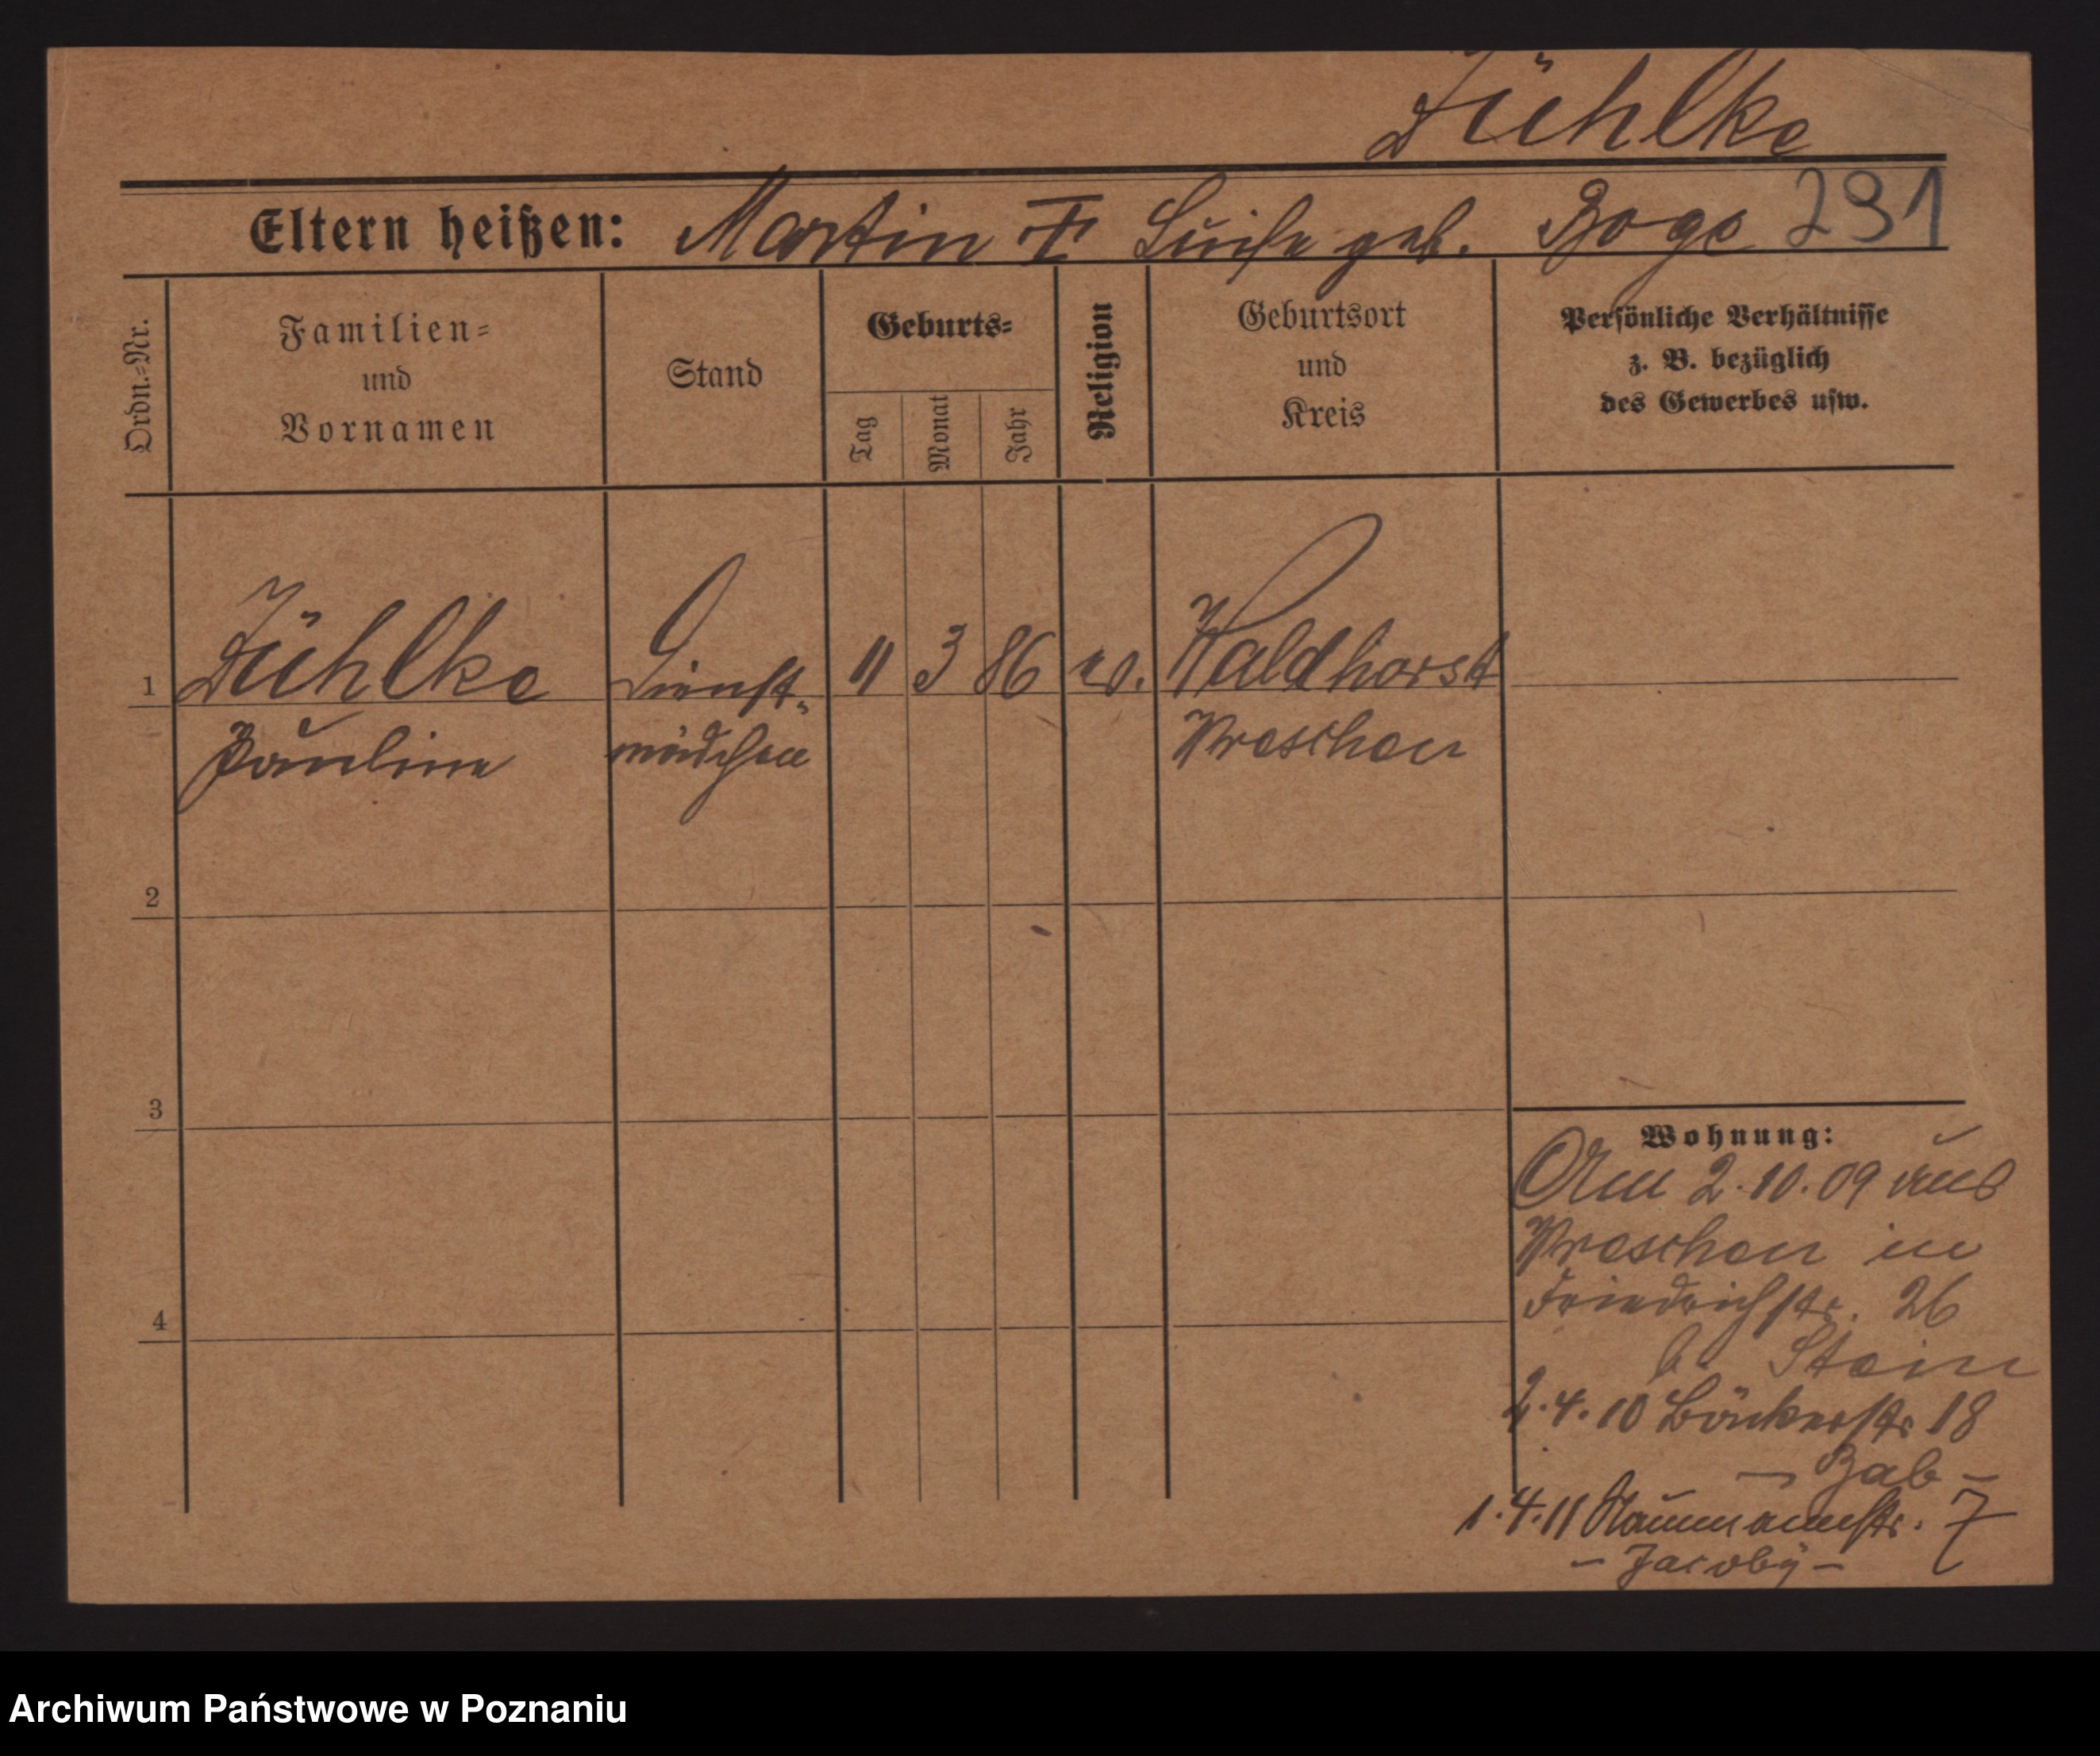 Zühlke
Eltern heißen: Martin Luise geb. 291
Ordn.=Nr.
Familien=
und
Vornamen
Stand
Geburts=
Tag
Monat
Jahr
Religion
Geburtsort
und
Kreis
Persönliche Verhältnisse
z. B. bezüglich
des Gewerbes usw.
1 Zühlke Dienst- 11 3 86 ev. Waldhorst
Pauline mädchen Wreschen
2
3
4
Wohnung:
Am 2.10.09 aus
Wreschen in
Friedrichstr. 26
b. Stein
2.4.10 Bäckerstr 18
– Zab –
1.4.11 Naumannstr. 7
– Jacoby –
Archiwum Państwowe w Poznaniu